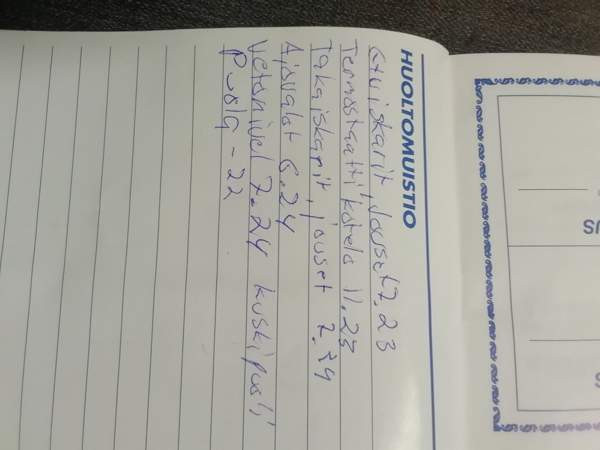 HUOLTOMUISTIO
Etuiskarit, jouset 7.23
Termostaatti kotelo 11.23
Takaiskarit, jouset 7.24
Ajovalot 6.24
Vetonivel 7.24 kuskipuoli
Puola - 22
US
S